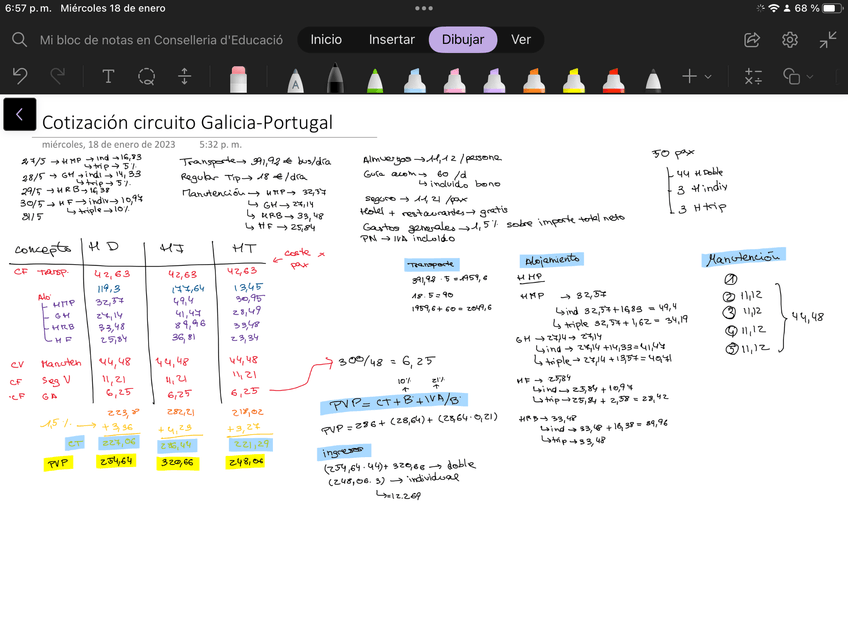 6:57 p. m. Miércoles 18 de enero
68 %
Mi bloc de notas en Conselleria d'Educació
Inicio
Insertar
Dibujar
Ver
Cotización circuito Galicia-Portugal
miércoles, 18 de enero de 2023 5:32 p. m.
27/5 → HMP → ind → 16,83
↳ trip → 5%
28/5 → GH → indi → 14,33
↳ trip → 5%
29/5 → HRB → 16,38
30/5 → HF → indiv → 10,97
↳ triple → 10%
31/5
Transporte → 391,92 € bus/día
Regular Tip → 18 €/día
Manutención → HMP → 32,57
↳ GH → 27,14
↳ HRB → 33,48
↳ HF → 25,84
Almuerzos → 11,12 /persona
Guía acom → 60 /d
↳ incluido bono
seguro → 11,21 /pax
Hotel + restaurantes → gratis
Gastos generales → 1,5% sobre importe total neto
PN → IVA incluido
50 pax
44 H Doble
3 H indiv
3 H trip
concepto HD HI HT
← coste x pax
CF Transp. 42,63 42,63 42,63
119,3 177,64
Alo
HMP 32,57 49,4 30,95
GH 27,14 41,47
HRB 33,48 33,48
HF 25,84 36,81
CV Manuten 44,48 44,48 44,48
CF Seg V 11,21 11,21 11,21
CF GA 6,25 6,25 6,25
1,5%
+3,36 +4,23 +3,27
CT
PVP 254,64 320,66 248,06
Transporte
391,92 · 5 = 1959,6
18 · 5 = 90
1959,6 + 60 = 2049,6
300/48 = 6,25
10% 21%
PVP = CT + B + IVA/B
PVP = 286 + (28,64) + (28,64 · 0,21)
ingreso
(254,64 · 44) + 320,66 → doble
(248,06 · 3) → individual
↳ = 12.269
Alojamiento
HMP
HMP → 32,57
↳ ind 32,57 + 16,83 = 49,4
↳ triple 32,57 + 1,62 = 34,19
GH → 27,14 → 27,14
↳ ind → 27,14 + 14,33 = 41,47
↳ triple → 27,14 + 13,57 = 40,71
HF → 25,84
↳ ind → 25,84 + 10,97
↳ trip → 25,84 + 2,58 = 28,42
HRB → 33,48
↳ ind → 33,48 + 16,38 =
↳ trip → 33,48
Manutención
①
② 11,12
③ 11,12
④ 11,12
⑤ 11,12
44,48